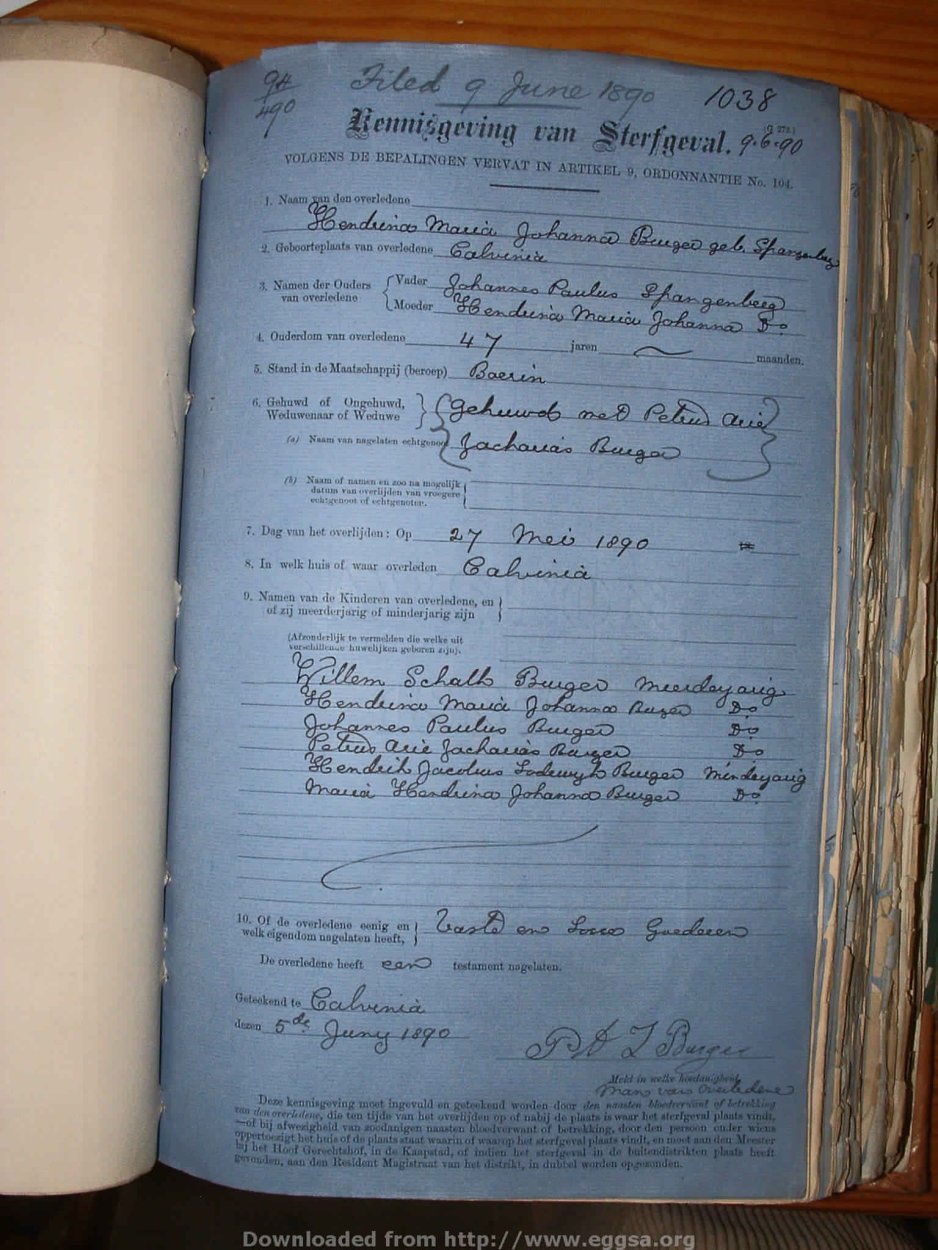 94
490
Filed 9 June 1890
1038
(G 272.)
Kennisgeving van Sterfgeval. 9.6.90
VOLGENS DE BEPALINGEN VERVAT IN ARTIKEL 9, ORDONNANTIE No. 104.
1. Naam van den overledene
Hendrina Maria Johanna Burger geb. Spangenberg
2. Geboorteplaats van overledene Calvinia
3. Namen der Ouders van overledene { Vader Johannes Paulus Spangenberg
Moeder Hendrina Maria Johanna Do
4. Ouderdom van overledene 47 jaren — maanden.
5. Stand in de Maatschappij (beroep) Boerin
6. Gehuwd of Ongehuwd, Weduwenaar of Weduwe } Gehuwd met Petrus Arie
(a) Naam van nagelaten echtgenoot Zacharias Burger
(b) Naam of namen en zoo na mogelijk
datum van overlijden van vroegere
echtgenoot of echtgenoten.
7. Dag van het overlijden: Op 27 Mei 1890
8. In welk huis of waar overleden Calvinia
9. Namen van de Kinderen van overledene, en
of zij meerderjarig of minderjarig zijn
(Afzonderlijk te vermelden die welke uit
verschillende huwelijken geboren zijn).
Willem Schalk Burger meerderjarig
Hendrina Maria Johanna Burger Do
Johannes Paulus Burger Do
Petrus Arie Zacharias Burger Do
Hendrik Jacobus Lodewyk Burger minderjarig
Maria Hendrina Johanna Burger Do
10. Of de overledene eenig en
welk eigendom nagelaten heeft, } Vaste en Losse Goederen
De overledene heeft een testament nagelaten.
Geteekend te Calvinia
dezen 5de Juny 1890
P A Z Burger
Meld in welke hoedanigheid
Man van Overledene
Deze kennisgeving moet ingevuld en geteekend worden door den naasten bloedverwant of betrekking
van den overledene, die ten tijde van het overlijden op of nabij de plaats is waar het sterfgeval plaats vindt,
—of bij afwezigheid van zoodanigen naasten bloedverwant of betrekking, door den persoon onder wiens
oppertoezigt het huis of de plaats staat waarin of waarop het sterfgeval plaats vindt, en moet aan den Meester
bij het Hoof Geregtshof, in de Kaapstad, of indien het sterfgeval in de buitendistrikten plaats heeft
gevonden, aan den Resident Magistraat van het distrikt, in dubbel worden opgezonden.
Downloaded from http://www.eggsa.org